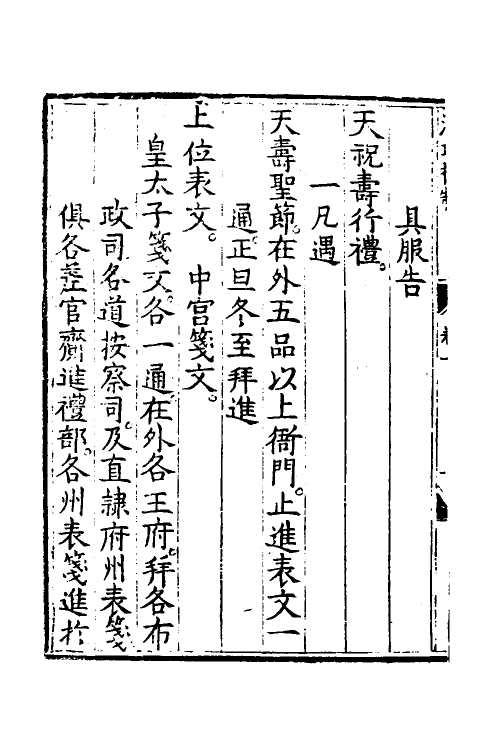 具服告
天祝壽行禮。
一凡遇
天壽聖節。在外五品以上衙門。止進表文一
通。正旦冬至拜進
上位表文。中宫箋文。
皇太子箋文。各一通。在外各王府。拜各布
政司各道按察司。及直隷府州表箋
俱各差官齎進禮部。各州表箋進於